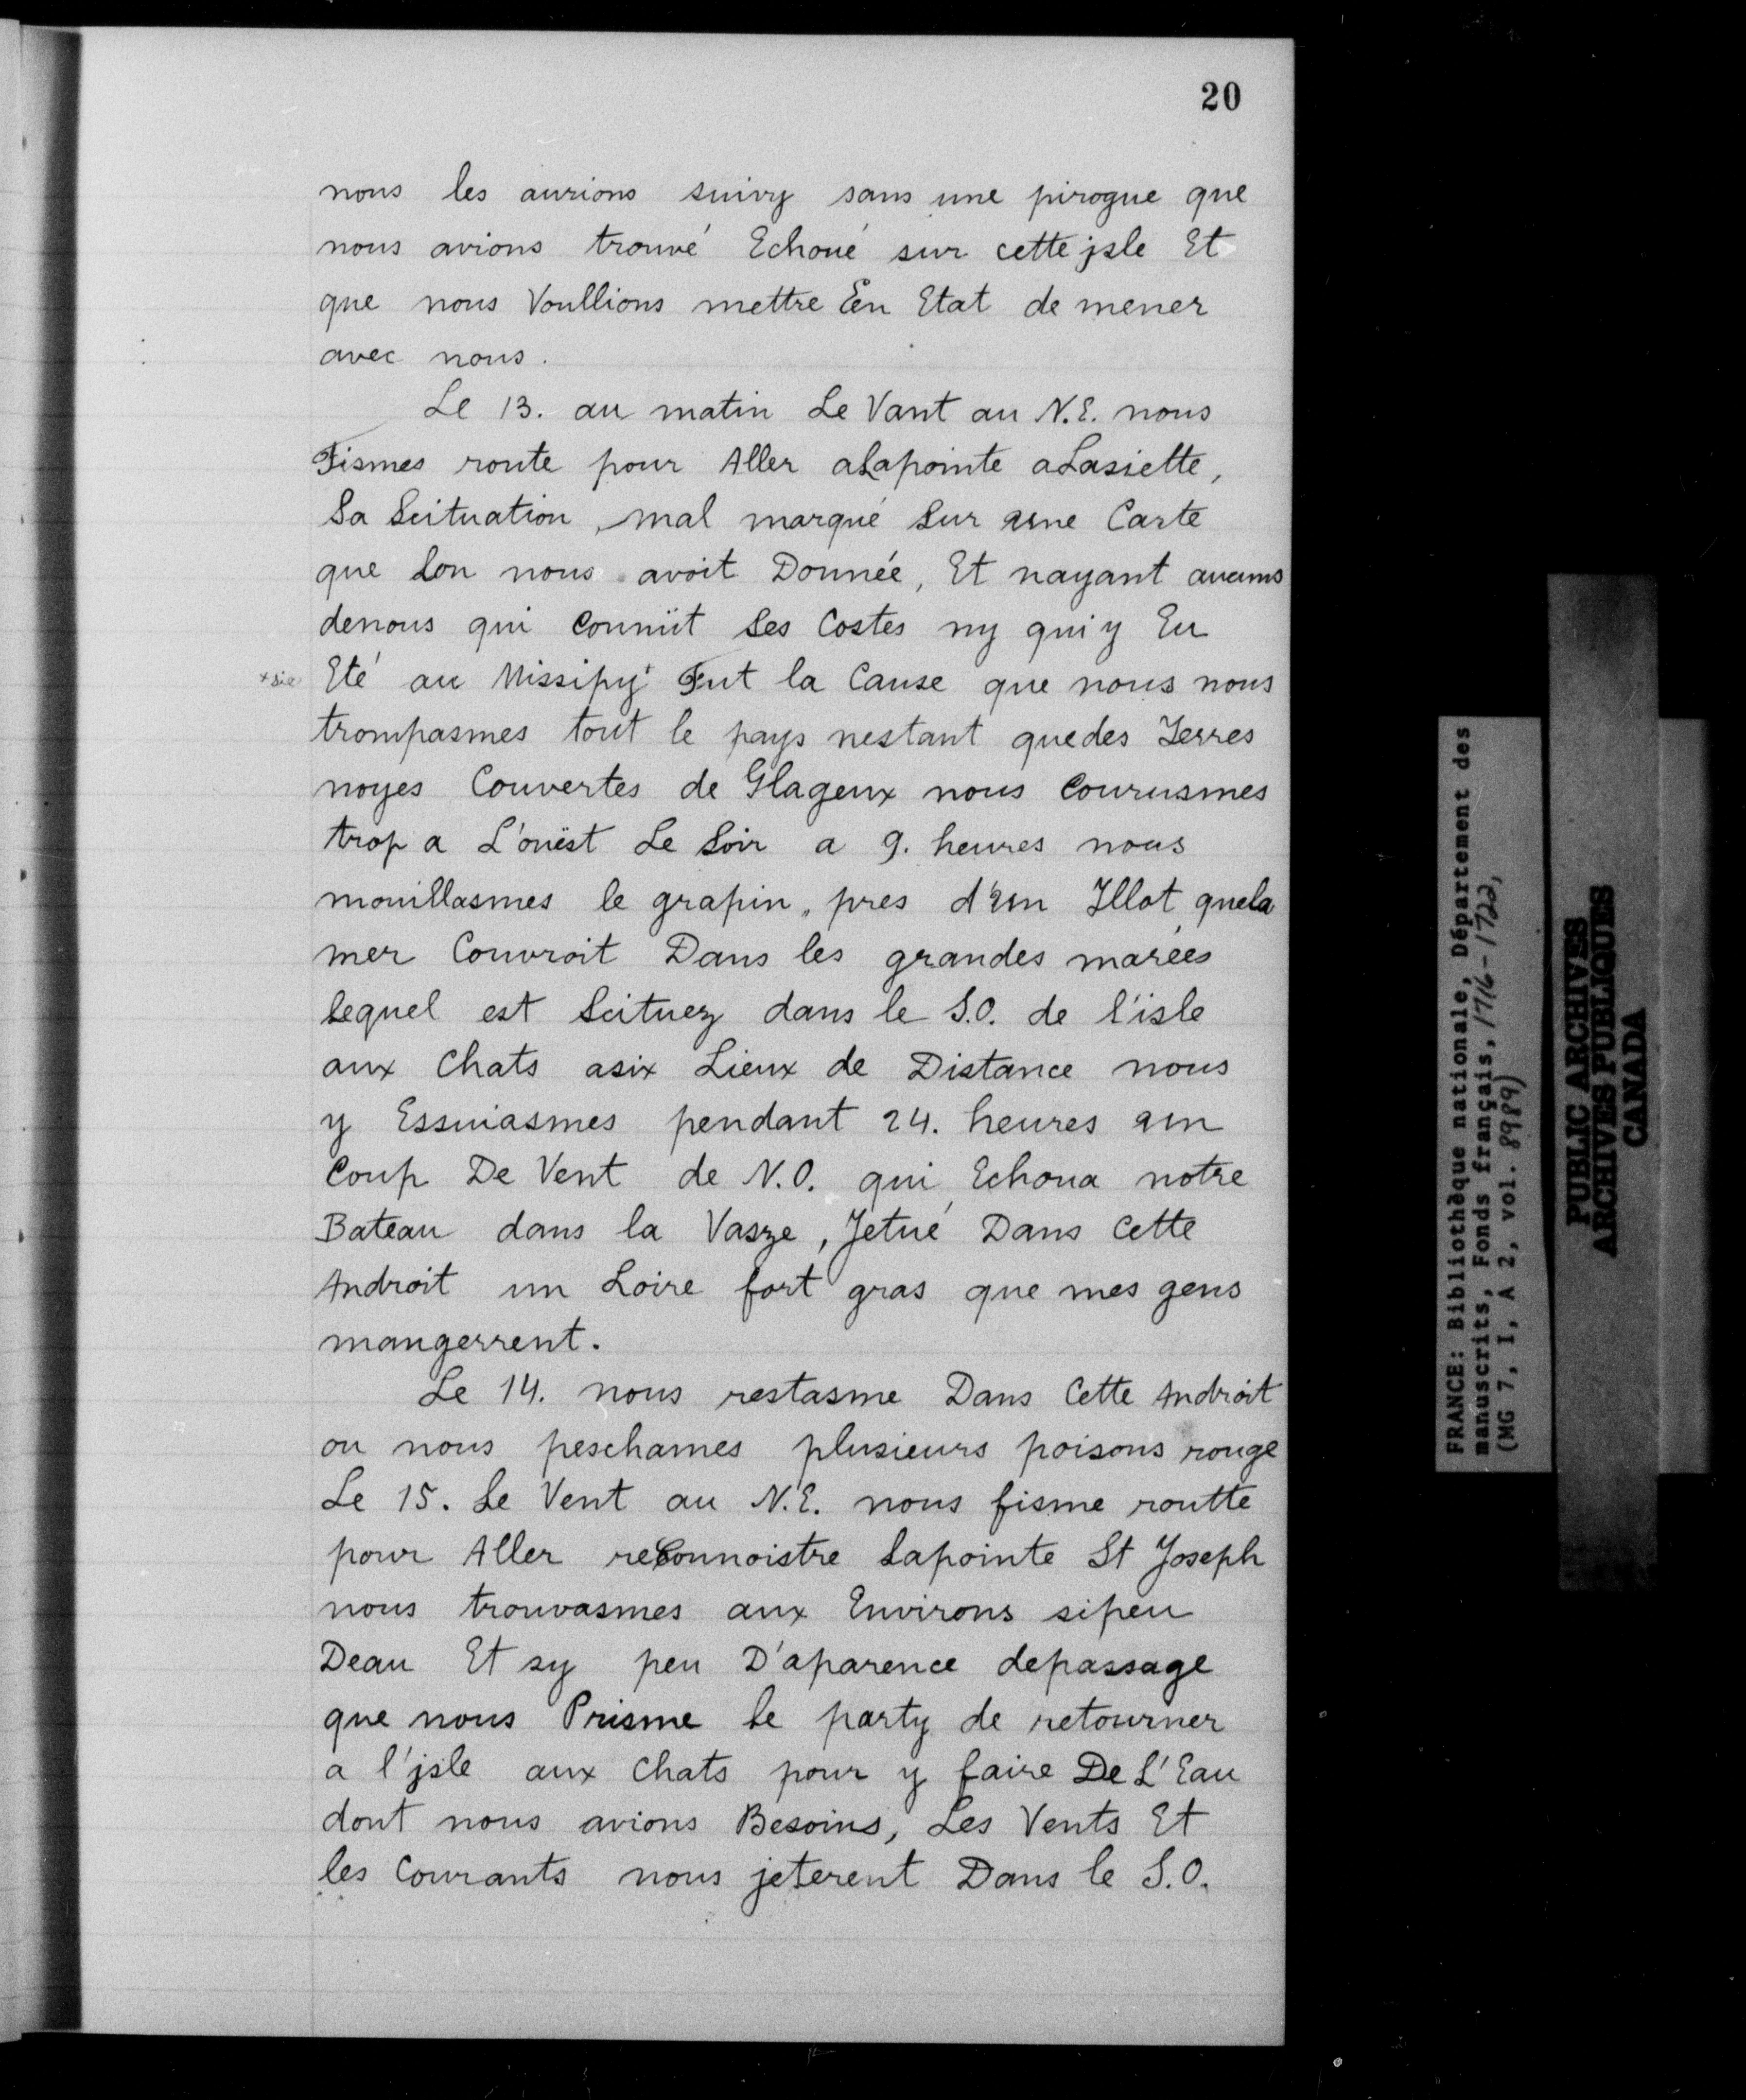 20
nous les aurions suivy sans une pirogue que
nous avions trouvé Echoué sur cette jsle Et
que nous Voullions mettre En Etat de mener
avec nous.
Le 13. au matin Le Vant au N.E. nous
Fismes route pour Aller aLapointe aLasiette,
Sa Scituation, mal marqué Sur une Carte
que Lon nous avoit Donnée, Et nayant aucuns
denous qui Connüt Ses Costes ny qui y Eu
+sic Eté au Missipy+ Fut la Cause que nous nous
trompasmes tout le pays nestant quedes Terres
noyes Couvertes de Glageux nous Courusmes
trop a L'ouëst Le Soir a 9. heures nous
mouillasmes le grapin, pres d'un Jllot quela
mer Couvroit Dans les grandes marées
Lequel est Scituez dans le S.O. de l'isle
aux Chats asix Lieux de Distance nous
y Essuiasmes pendant 24. heures un
Coup De Vent de N.O. qui Echoua notre
Bateau dans la Vasze, Jetué Dans Cette
Androit un Loire fort gras que mes gens
mangerrent.
Le 14. nous restasme Dans Cette Androit
ou nous peschames plusieurs poisons rouge
Le 15. Le Vent au N.E. nous fisme routte
pour Aller reConnoistre Lapointe St Joseph
nous trouvasmes aux Environs sipeu
Deau Et sy peu D'aparence depassage
que nous Prisme Le party de retourner
a l'jsle aux Chats pour y faire De L'Eau
dont nous avions Besoins, Les Vents Et
les Courants nous jeterent Dans le S.O.
FRANCE: Bibliothèque nationale, Département des
manuscrits, Fonds français, 1716-1722,
(MG 7, I, A 2, vol. 8989)
PUBLIC ARCHIVES
ARCHIVES PUBLIQUES
CANADA